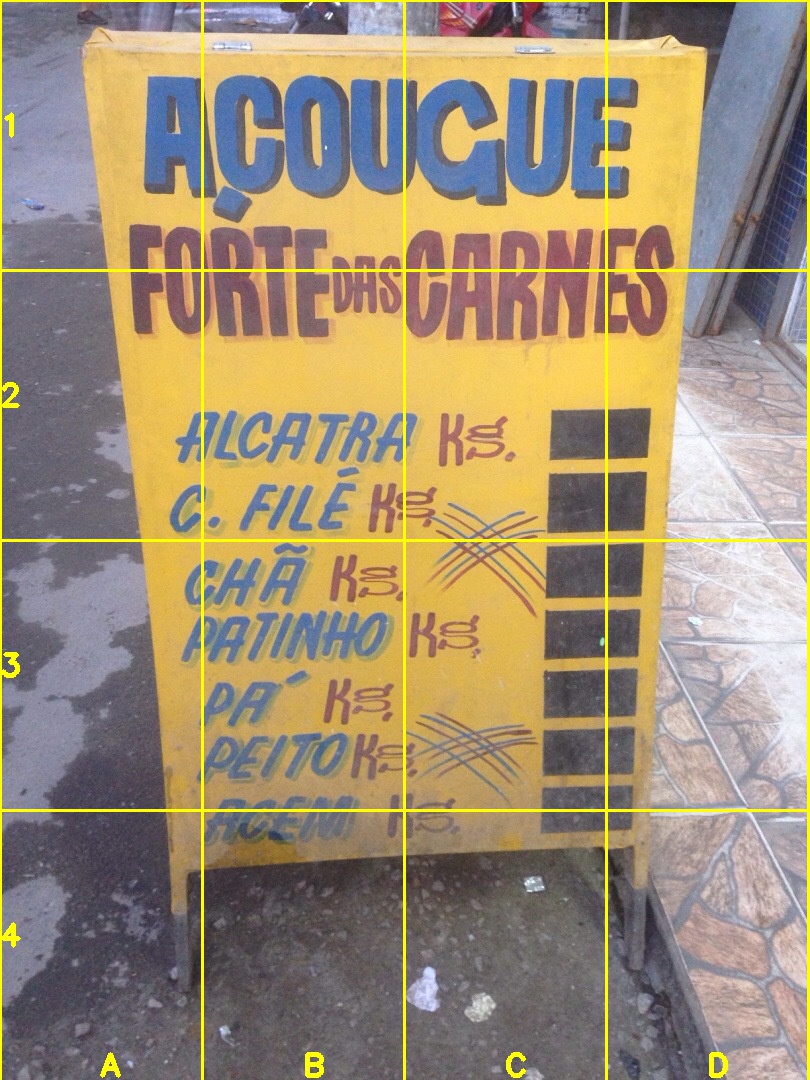 AÇOUGUE
FORTE DAS CARNES
ALCATRA Kg.
C. FILÉ Kg
CHÃ Kg.
PATINHO Kg
PÁ Kg.
PEITO Kg.
ACEM Kg.